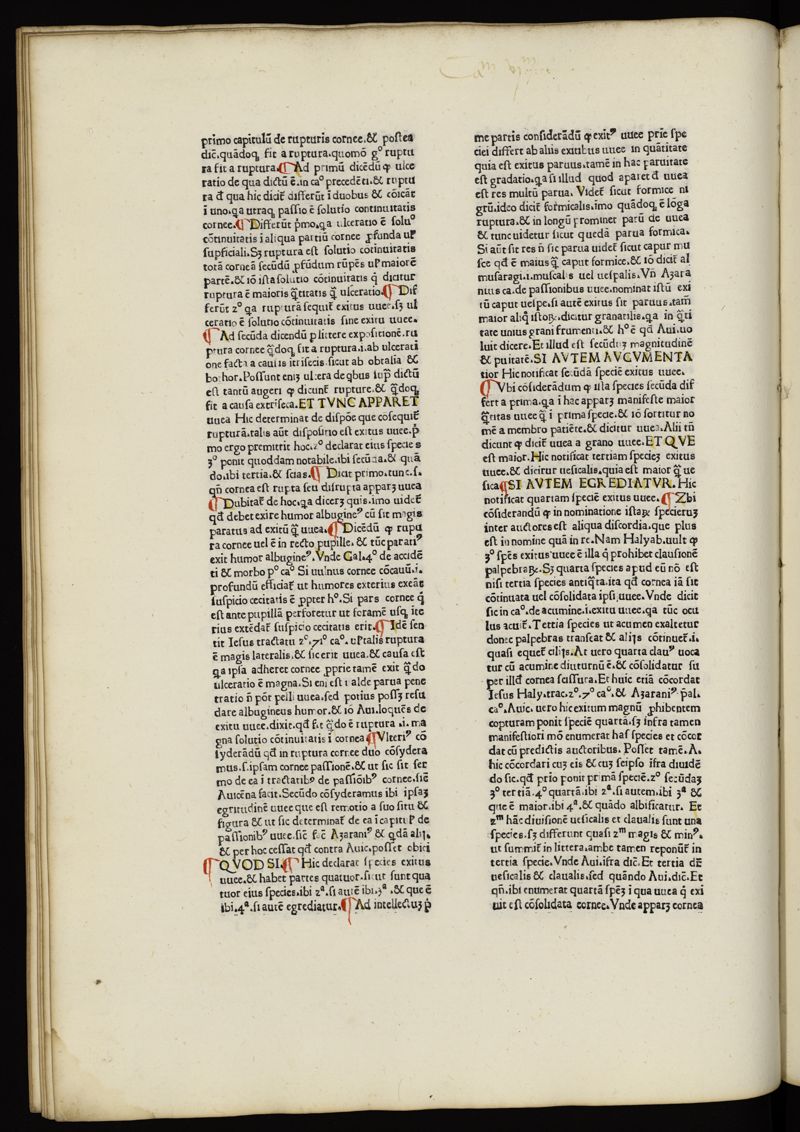 primo capitulū de rupturis cornee.& postea
dic̄.quādoq̨ fit a ruptura.quomō g° ruptu
ra fit a ruptura. Ad primū dicēdū ꝙ ulce
ratio de qua dictū ē.in ca° precedēti.& ruptu
ra đ qua hic dicit̄ differūt i duobus & cōicāt
i uno.qa utraq̨ passio ē solutio continuitatis
cornee. Differūt p̄mo.qa ulceratio ē solu°
cōtinuitatis i aliqua partiū cornee ꝓfunda uꝉ
supficiali.Sꝫ ruptura est solutio cōtinuitatis
totā corneā secūdū ꝓfūdum rūpēs uꝉ maiorē
partē.& iō ista solutio cōtinuitatis q̄ dicitur
ruptura ē maioris q̄titatis q̄ ulceratio. Dif
ferūt 2° qa rupturā sequit̄ exitus uuee.sꝫ ul
ceratio ē solutio cōtinuitatis sine exitu uuee.
Ad secūda dicendū ꝓ littere expositionē.ru
ptura cornee q̄doq̨ fit a ruptura.i.ab ulcerati
one facta a causis itrisecis.sicut ab obtalia &
bothor.Possunt eniꝫ ulcera de qbus sup̄ dictū
est tantū augeri ꝙ dicunt̄ rupture.& q̄doq̨
fit a causa extriseca.ET TVNC APPARET
uuea Hic determinat de dispōe que cōsequit̄
rupturā.talis aūt dispositio est exitus uuee.p̄
mo ergo premittit hoc.2° declarat eius species
3° ponit quoddam notabile.ibi secūda.& quā
do.ibi tertia.& scias. Dicit primo.tunc.s.
qn̄ cornea est rupta seu disrupta apparꝫ uuea
Dubitat̄ de hoc.qa dicerꝫ quis.imo uidet̄
qđ debet exire humor albugineꝰ cū sit magis
paratus ad exitū q̄ uuea. Dicēdū ꝙ ruptu
ra cornee uel ē in recto pupille.& tūc paratiꝰ
exit humor albugineꝰ.Vnde Gal.4° de accidē
ti & morbo p° ca° Si uulnus cornee cōcauū.i.
profundū efficiat̄ ut humores exterius exeāt
suspicio cecitatis ē ꝓpter h°.Si pars cornee q̄
est ante pupillā perforetur ut foramē usq̨ ite
rius extēdat̄ suspicio cecitatis erit. Idē sen
tit Iesus tractatu 2°.71° ca°.uꝉ talis ruptura
ē magis lateralis.& sic erit uuea.& causa est
qa ipsa adheret cornee ꝓprie tamē exit q̄do
ulceratio ē magna.Si eni est i alde parua pene
tratio n̄ pōt pelli uuea.sed potius possꝫ resu
dare albugineus humor.& iō Aui.loquēs de
exitu uuee.dixit.qđ fit q̄do ē ruptura .i.ma
gna solutio cōtinuitatis i cornea Vlteriꝰ cō
syderādū qđ in ruptura cornee duo cōsydera
mus.s.ipsam cornee passionē.& ut sic fit ser
mo de ea i tractatibꝰ de passiōibꝰ cornee.sic̄
Auicēna facit.Secūdo cōsyderamus ibi ipsaꝫ
egritudinē uuee que est remotio a suo situ &
figura & ut sic determinat̄ de ea i capitꝉ de
passionibꝰ uuee.sic̄ fec̄ Aꝫaraniꝰ & qdā alij.
& per hoc cessat qđ contra Auic.posset obici
QVOD SI. Hic declarat species exitus
uuee.& habet partes quatuor.sicut sunt qua
tuor eius species.ibi 2ª.si autē ibi.3ª.& que ē
ibi.4ª.si autē egrediatur. Ad intellectuꝫ p̄
me partis considerādū ꝙ exitꝰ uuee prie spe
ciei differt ab aliis exitibus uuee in quātitate
quia est exitus paruus.tamē in hac paruitate
est gradatio.qa si illud quod aparet đ uuea
est res multū parua. Videt̄ sicut formice ni
grū.ideo dicit̄ formicalis.imo quādoq̨ ē lōga
ruptura.& in longū prominet parū de uuea
& tunc uidetur sicut quedā parua formica.
Si aūt sit res n̄ sic parua uidet̄ sicut caput mu
sce qđ ē maius q̄ caput formice.& iō dicit̄ al
musaragi.i.muscalis uel uespalis.Vn̄ Aꝫara
nius ca.de passionibus uuee.nominat istū exi
tū caput uespe.si autē exitus sit paruus.tam̄
maior aliq̄ istoꝝ.dicitur granatilis.qa in q̄ti
tate unius grani frumenti.& h° ē qđ Aui.uo
luit dicere.Et illud est secūduꝫ magnitudinē
& puitatē.SI AVTEM AVGVMENTA
tior Hic notificat secūdā speciē exitus uuee.
Vbi cōsiderādum ꝙ ista species secūda dif
fert a prima.qa i hac apparꝫ manifeste maior
q̄titas uuee q̄ i prima specie.& iō sortitur no
mē a membro patiēte.& dicitur uuea.Alii tn̄
dicunt ꝙ dicit̄ uuea a grano uuee.ET QVE
est maior.Hic notificat tertiam specieꝫ exitus
uuee.& dicitur uesicalis.quia est maior q̄ ue
sica SI AVTEM EGREDIATVR.Hic
notificat quartam speciē exitus uuee. Vbi
cōsiderandū ꝙ in nominatione istaꝝ specieruꝫ
inter auctores est aliqua discordia.que plus
est in nomine quā in re.Nam Halyab.uult ꝙ
3° spēs exitus uuee ē illa q̄ prohibet clausionē
palpebraꝝ.Sꝫ quarta species apud eū nō est
nisi tertia species antiq̄ta.ita qđ cornea iā sit
cōtinuata uel cōsolidata ipsi uuee.Vnde dicit
sic in ca°.de acumine.i.exitu uuee.qa tūc ocu
lus acuit̄.Tertia species ut acumen exaltetur
donec palpebras transeat & alijs cōtinuet̄.i.
quasi equet̄ cilijs.At uero quarta claui uoca
tur cū acumine diuturnū ē.& cōsolidatur su
per illđ cornea fissura.Et huic etiā cōcordat
Iesus Haly.trac.2°.7° ca°.& Aꝫaraniꝰ pal.
ca°.Auic.uero hic exitum magnū ꝓhibentem
copturam ponit speciē quartā.sꝫ infra tamen
manifestiori mō enumerat has species et cōcor
dat cū predictis auctoribus.Posset tamē.A.
hic cōcordari cuꝫ eis & cuꝫ seipso ifra diuidē
do sic.qđ prio ponit primā speciē.2° secūdaꝫ
3° tertiā.4° quartā.ibi 2ª.si autem.ibi 3ª &
que ē maior.ibi 4ª.& quādo albificatur. Et
2ᵐ hāc diuisionē uesicalis et claualis sunt una
species.sꝫ differunt quasi 2ᵐ magis & minꝰ.
ut summit̄ in littera.ambe tamen reponūt̄ in
tertia specie.Vnde Aui.ifra dic̄.Et tertia dr̄
uesicalis & claualis.sed quādo Aui.dic̄.Et
qn̄.ibi enumerat quartā spēꝫ i qua uuea q̄ exi
uit est cōsolidata cornee.Vnde apparꝫ cornea